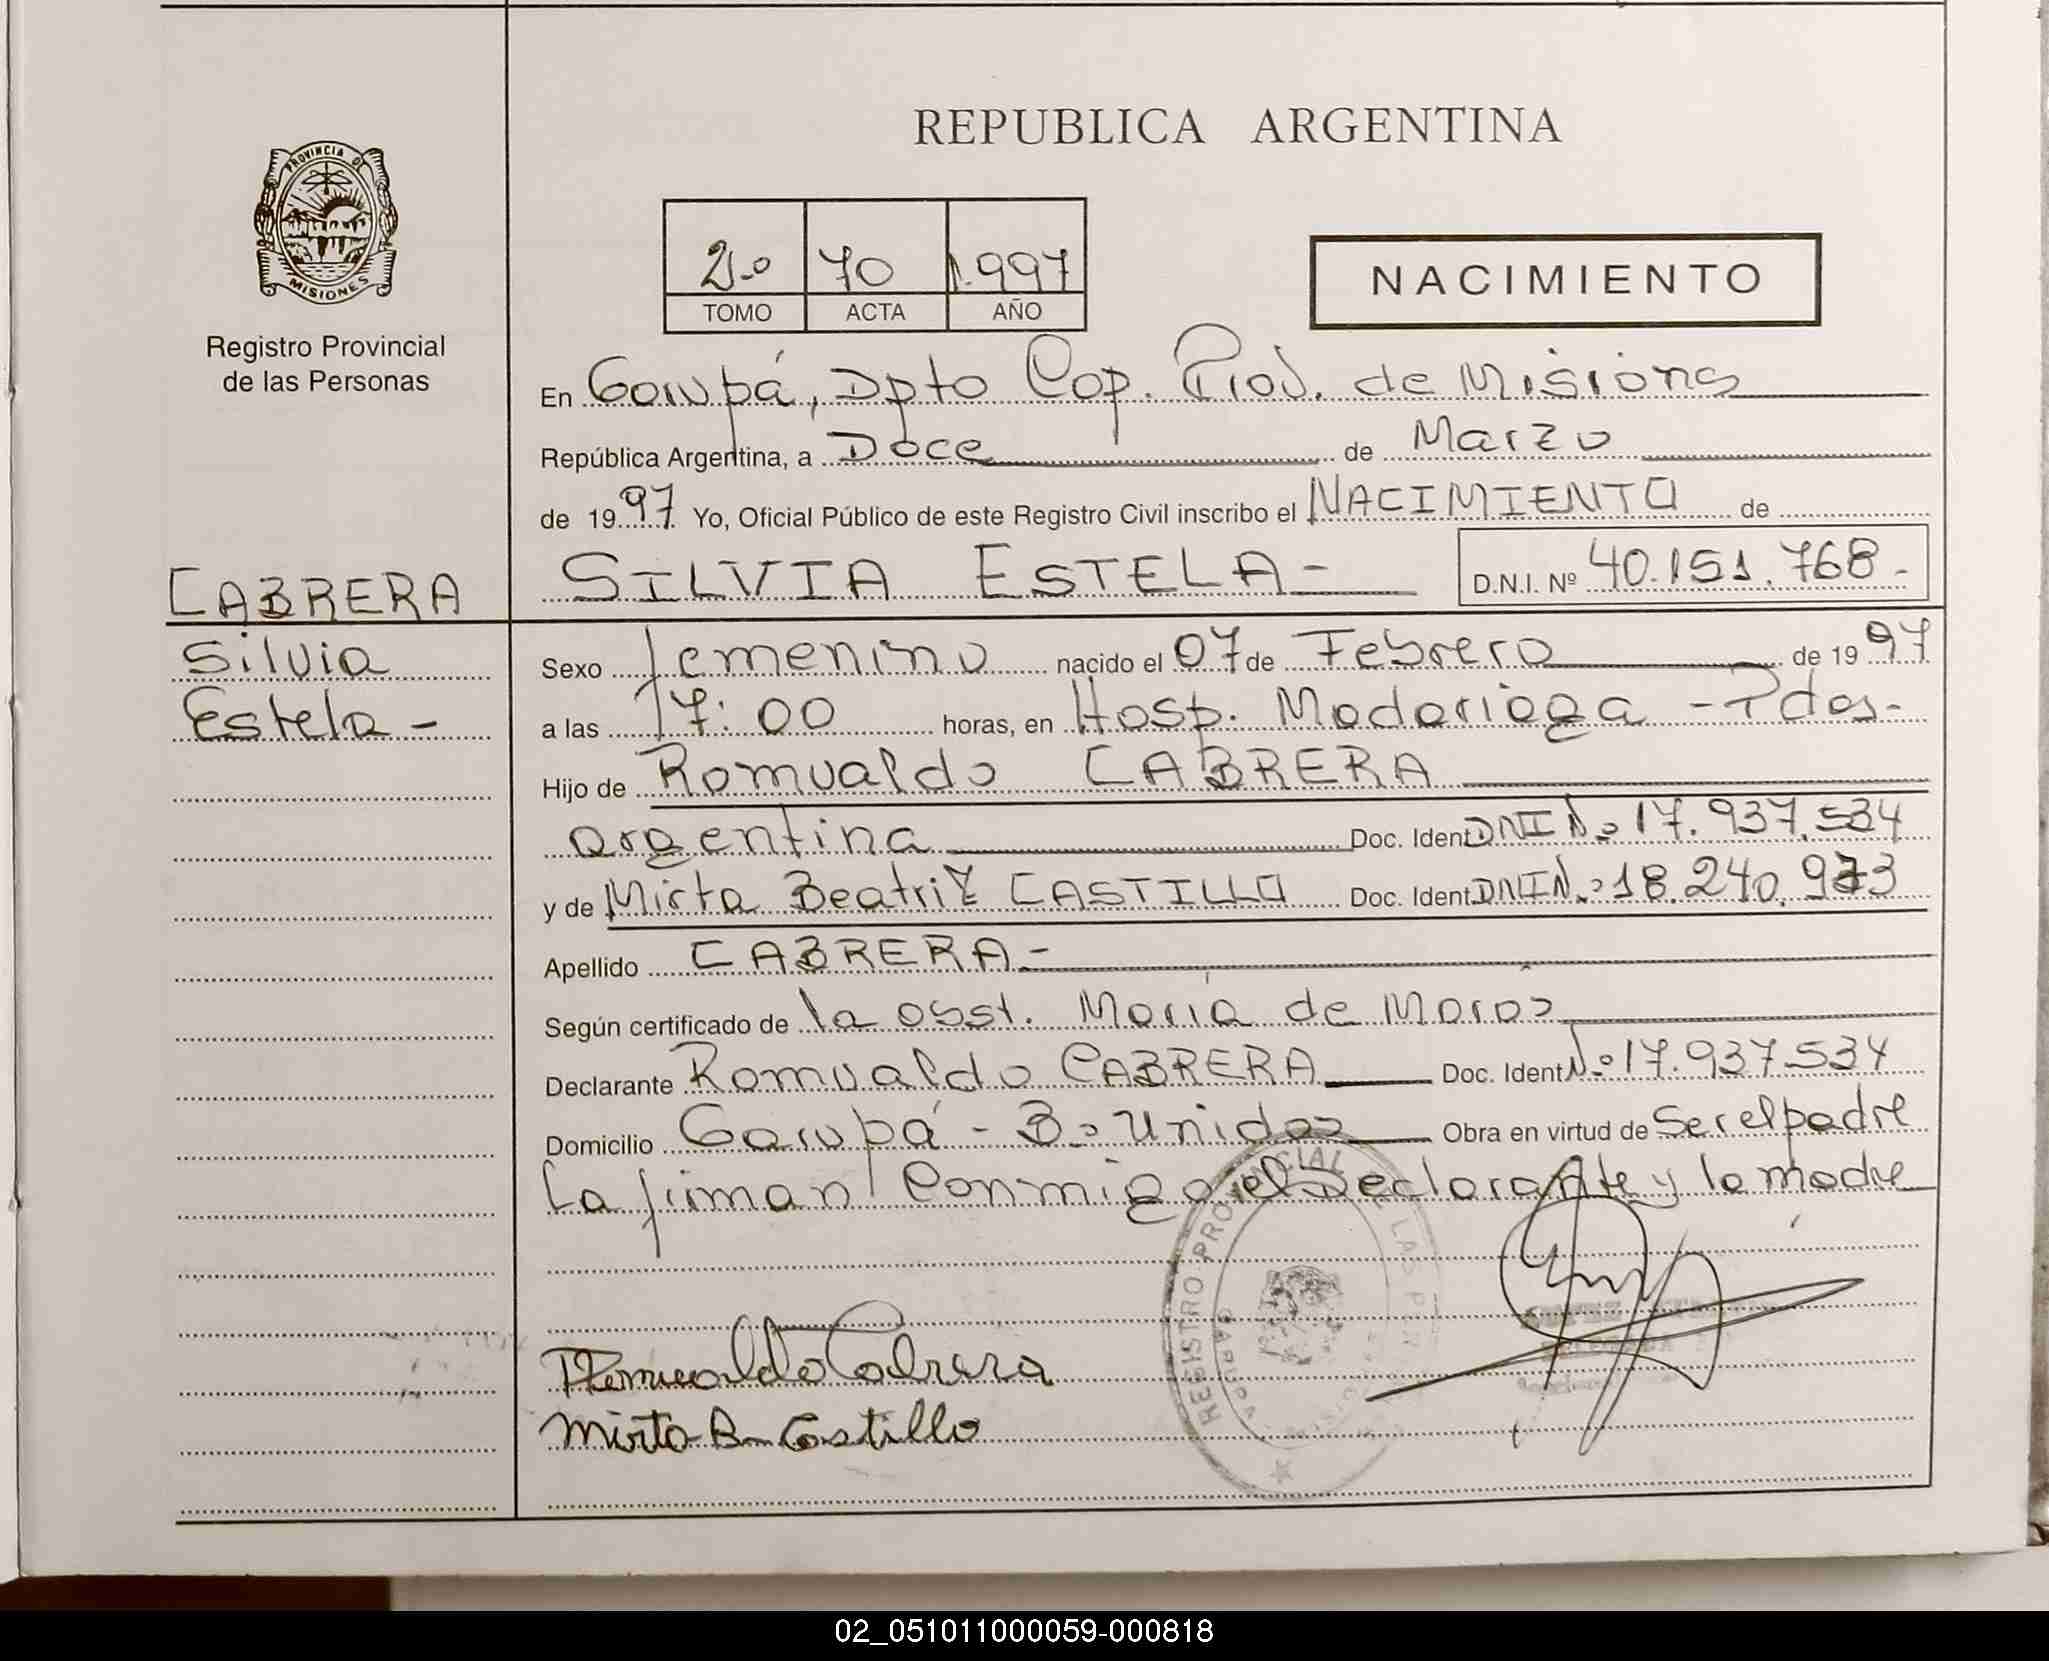 REPUBLICA ARGENTINA
PROVINCIA DE
MISIONES
Registro Provincial
de las Personas
2º 70 1.997
TOMO ACTA AÑO
NACIMIENTO
En Garupá, Dpto Cap. Prov. de Misiones
República Argentina, a Doce de Marzo
de 1997 Yo, Oficial Público de este Registro Civil inscribo el NACIMIENTO de
CABRERA
Silvia
Estela -
SILVIA ESTELA - D.N.I. Nº 40.151.768 -
Sexo femenino nacido el 07 de Febrero de 1997
a las 17:00 horas, en Hosp. Madariaga - Pdas -
Hijo de Romualdo CABRERA
argentina Doc. Ident DNI Nº 17.937.534
y de Mirta Beatriz CASTILLO Doc. Ident DNI Nº 18.240.973
Apellido CABRERA -
Según certificado de la obst. María de Moros
Declarante Romualdo CABRERA Doc. Ident Nº 17.937.534
Domicilio Garupá - Bº Unidos Obra en virtud de Ser el padre
La firman Conmigo el Declarante y la madre
Romualdo Cabrera
Mirta B Castillo
REGISTRO PROVINCIAL DE LAS PER
GARUPA
02_051011000059-000818